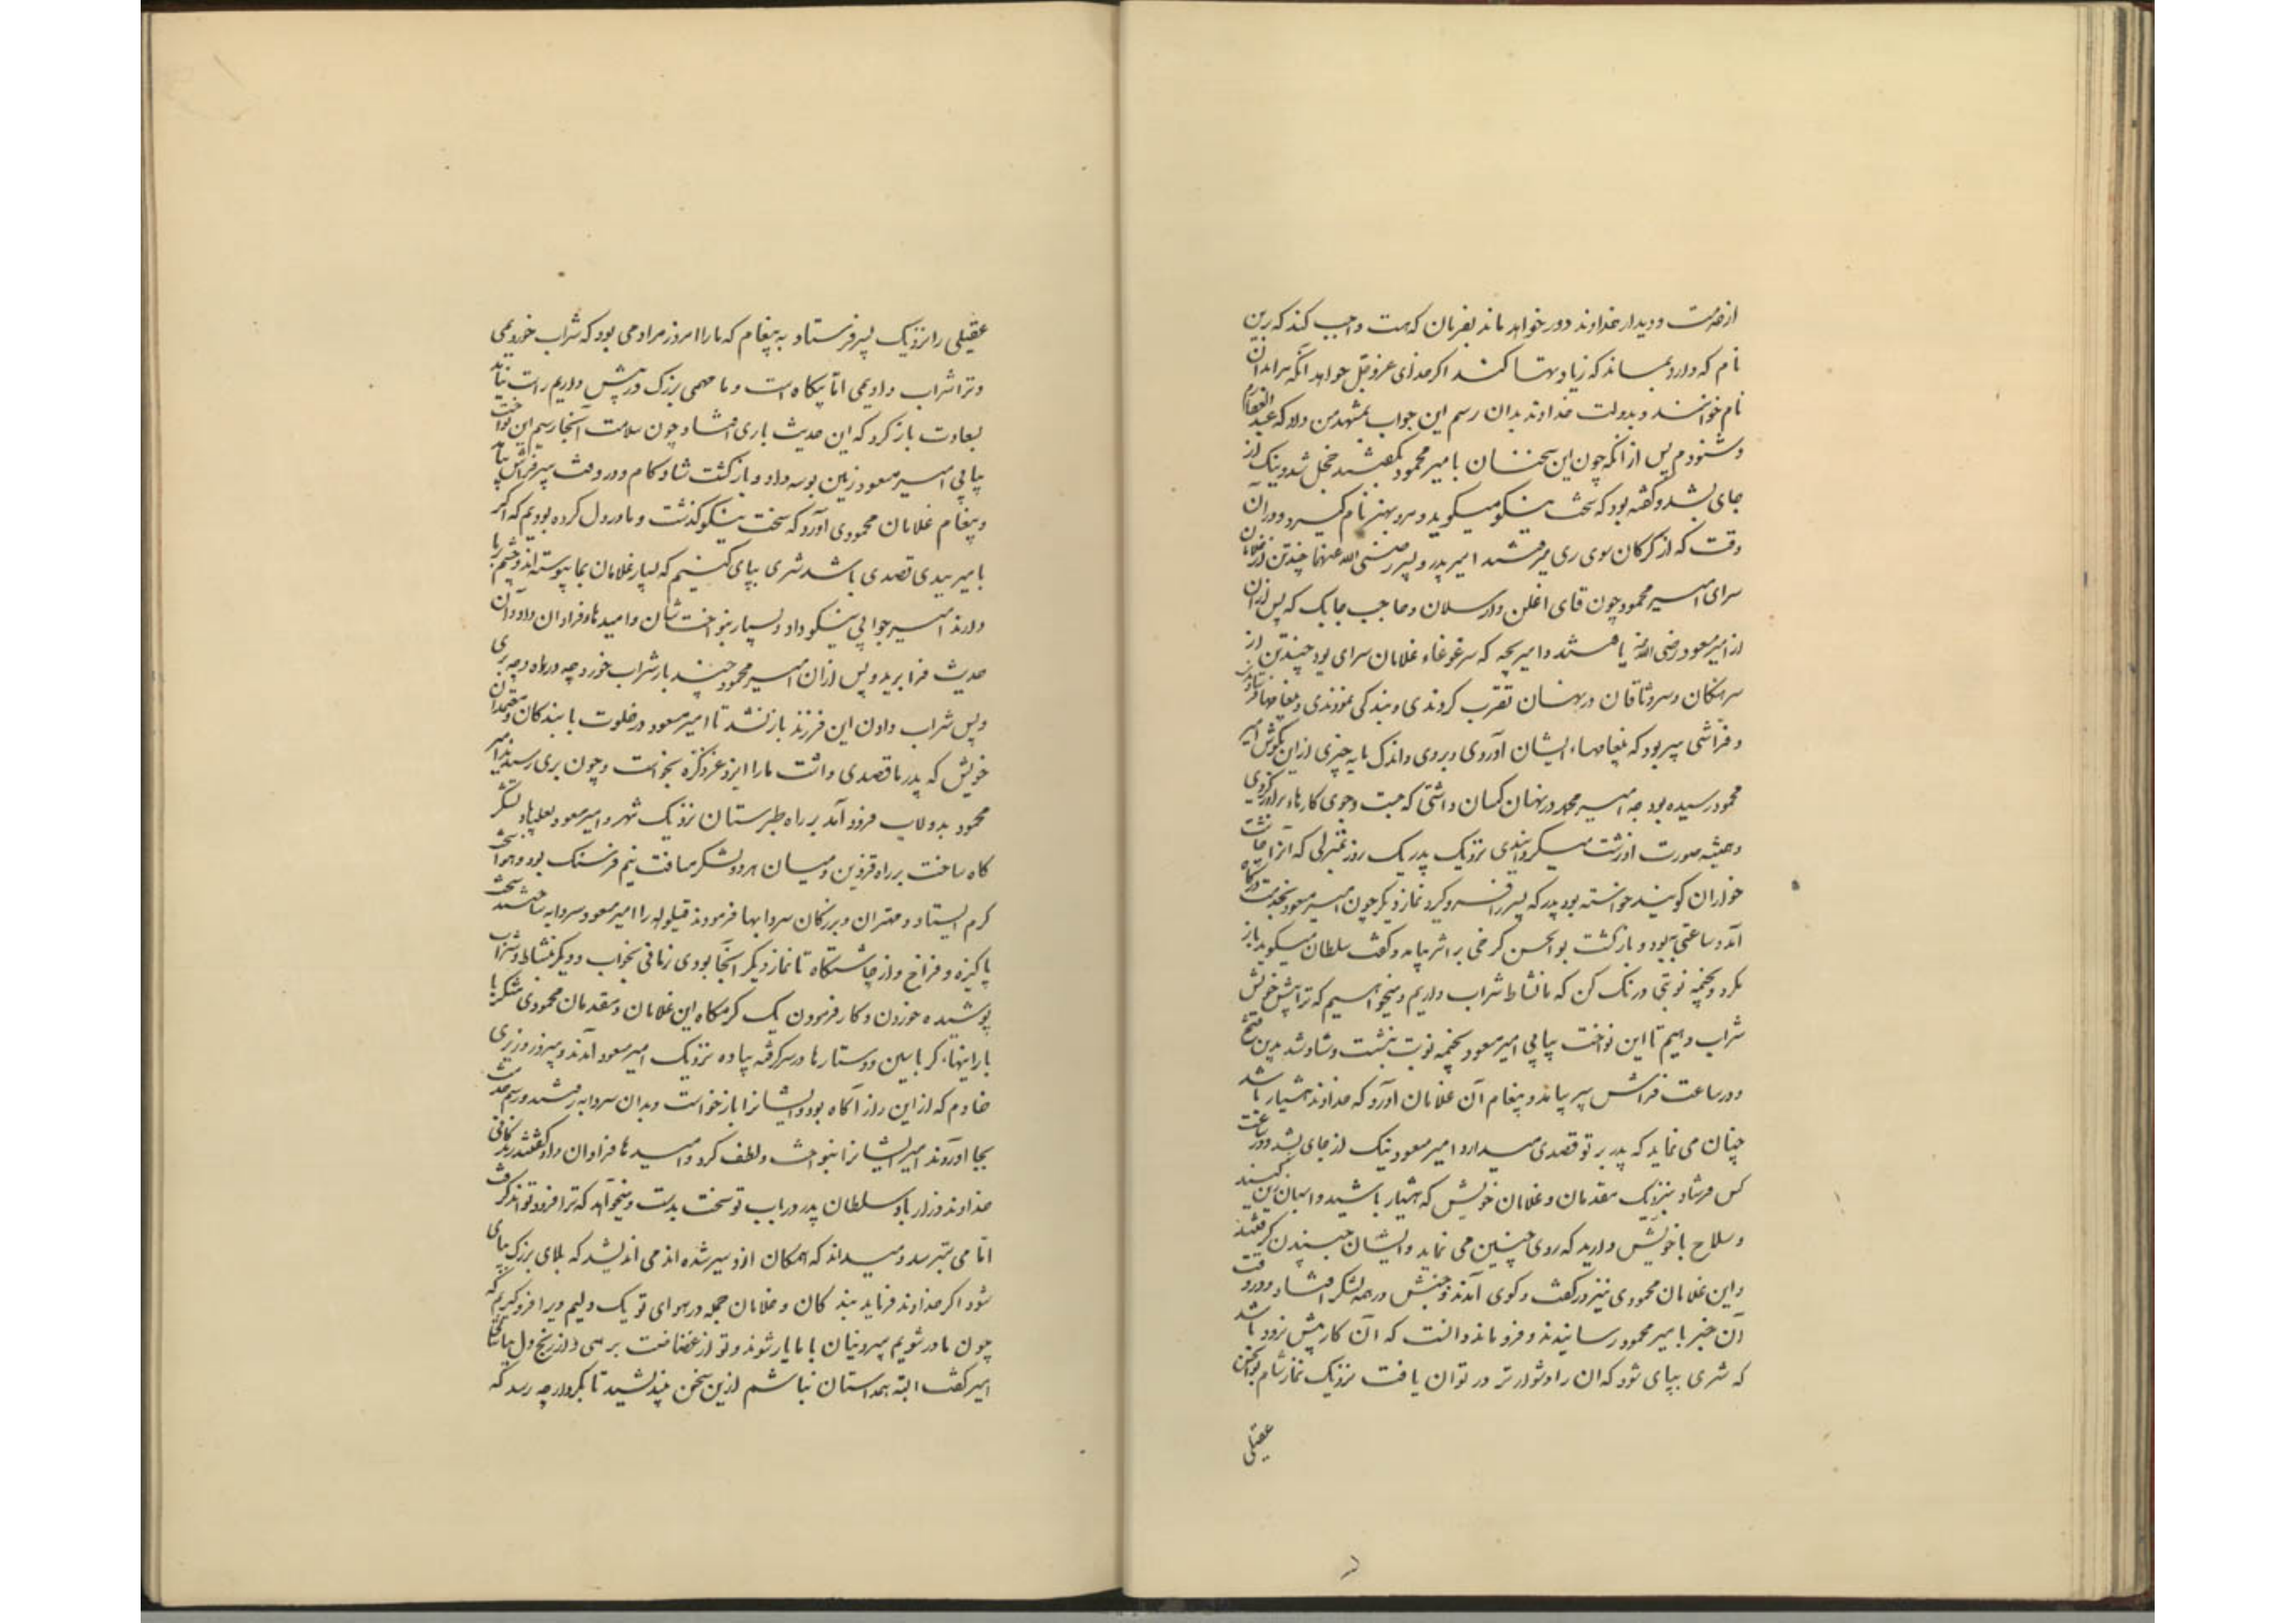 از خدمت و دیدار خداوند دور خواهد ماند بفرمان که هست واجب کند که برین
نام که دارد بماند که زیادتها کنند اکر خدای عزوجل خواهد آنکه مرا بدان
نام خوانند و بدولت خداوند بدان رسم این جواب بمشهد من داد که عبدالغفارم
و شنودم پس از آنکه چون این سخنان با میر محمود بگفتند خجل شد و نیک از
جای بشد و گفته بود که سخت نیکو میکوید و مرد بهنر نام گیرد و در آن
وقت که از کرکان سوی ری میرفتند امیر پدر و پسر رضی الله عنهما چند تن از غلامان
سرای امیر محمود چون قای اغلن و ارسلان و حاجب چابک که پس از آن
از امیر مسعود رضی الله عنه یافتند و امیر بچه که سر غوغاء غلامان سرای بود چند تن از
سرهنکان و سروثاقان در نهان تقرب کردندی و بندکی نمودندی و پیغامها فرستادندی
و فراشی پیر بود که پیغامهاء ایشان آوردی و بردی و اندک مایه چیزی از این بکوش امیر
محمود رسیده بود چه امیر محمد در نهان کسان داشتی که جست و جوی کارهاء برادر کردی
و همیشه صورت او زشت میکردانیدی نزدیک پدر یک روز بمنزلی که آنرا چاشت
خواران کویند خواسته بود پدر که پسر را فرو کیرد نماز دیکر چون امیر مسعود بخدمت درکاه
آمد و ساعتی ببود و باز کشت بوالحسن کرخی بر اثر بیامد و کفت سلطان میکوید باز
مکرد و بخیمه نوبتی درنک کن که ما نشاط شراب داریم و میخواهیم که ترا پیش خویش
شراب دهیم تا این نواخت بیابی امیر مسعود بخیمه نوبت بنشست و شاد شد بدین فتح
و در ساعت فراش پیر بیامد و پیغام آن غلامان آورد که خداوند هشیار باشد
چنان می نماید که پدر بر تو قصدی میدارد امیر مسعود نیک از جای بشد و در ساعت
کس فرستاد بنزدیک مقدمان و غلامان خویش که هشیار باشید و اسبان زین کنید
و سلاح با خویش دارید که روی چنین می نماید و ایشان جنبیدن کرفتند
و این غلامان محمودی نیز در کفت و کوی آمدند و جنبش در همه لشکر افتاد و در وقت
آن خبر با میر محمود رسانیدند و فرو ماند و دانست که آن کار پیش نرود باشد
که شری بپای شود که آن را دشوارتر در توان یافت نزدیک نماز شام بوالحسن
عقیلی
عقیلی را نزدیک پسر فرستاد به پیغام که ما را امروز مرادمی بود که شراب خوردیمی
و ترا شراب دادیمی اما بیکاه است و ما مهمی بزرک در پیش داریم راست نیامد
بسعادت باز کرد که این حدیث باری افتاد چون سلامت آنجا رسیم این نواخت
بیابی امیر مسعود زمین بوسه داد و بازکشت شادکام و در وقت پیر فراش بیامد
و پیغام غلامان محمودی آورد که سخت نیکو کذشت و ما در دل کرده بودیم که اکر
بامیر ببدی قصدی باشد شری بپای کنیم که بسیار غلامان بما پیوسته اند و چشم بما
دارند امیر جوابی نیکو داد و بسیار بنواختشان و امیدهاء فراوان داد و آن
حدیث فرا برید و پس از آن امیر محمود چند بار شراب خورد چه در راه و چه بری
و پس شراب دادن این فرزند باز نشد تا امیر مسعود در خلوت با بندکان و معتمدان
خویش که پدر ما قصدی داشت ما را ایزد عز ذکره نخواست و چون بری رسیدند امیر
محمود بدولاب فرود آمد بر راه طبرستان نزدیک شهر و امیر مسعود بعلیاباد لشکر
کاه ساخت بر راه قزوین و میان هر دو لشکر مسافت نیم فرسنک بود و هوا سخت
کرم ایستاد و مهتران و بزرکان سردابها فرمودند قیلوله را امیر مسعود سردابه ساختند سخت
پاکیزه و فراخ و از چاشتکاه تا نماز دیکر آنجا بودی زمانی بخواب و دیکر بنشاط و شراب
پوشیده خوردن و کار فرمودن یک کرمکاه این غلامان و مقدمان محمودی متنکر با
بارانیهاء کرباسین و دستارها در سر کرفته پیاده نزدیک امیر مسعود آمدند و پیروز وزیری
خادم که از این راز آکاه بود و ایشانرا باز خواست و بدان سردابه رفتند و رسم خدمت
بجا آوردند امیر ایشانرا بنواخت و لطف کرد و امیدها فراوان داد کفتند زندکانی
خداوند دراز باد سلطان پدر در باب تو سخت بدست و میخواهد که ترا فرو تواند کرفت
اما می بترسد و میداند که همکان ازو سیر شده اند می اندیشد که بلای بزرک بپای
شود اکر خداوند فرماید بندکان و غلامان جمله در هوای تو یک دلیم ویرا فرو کیریم که
چون ما در شویم بیرونیان با ما یار شوند و تو از غضاضت برهی و از رنج دل بیاسایی
امیر کفت البته همداستان نباشم ازین سخن بیندیشید تا بکردار چه رسد که